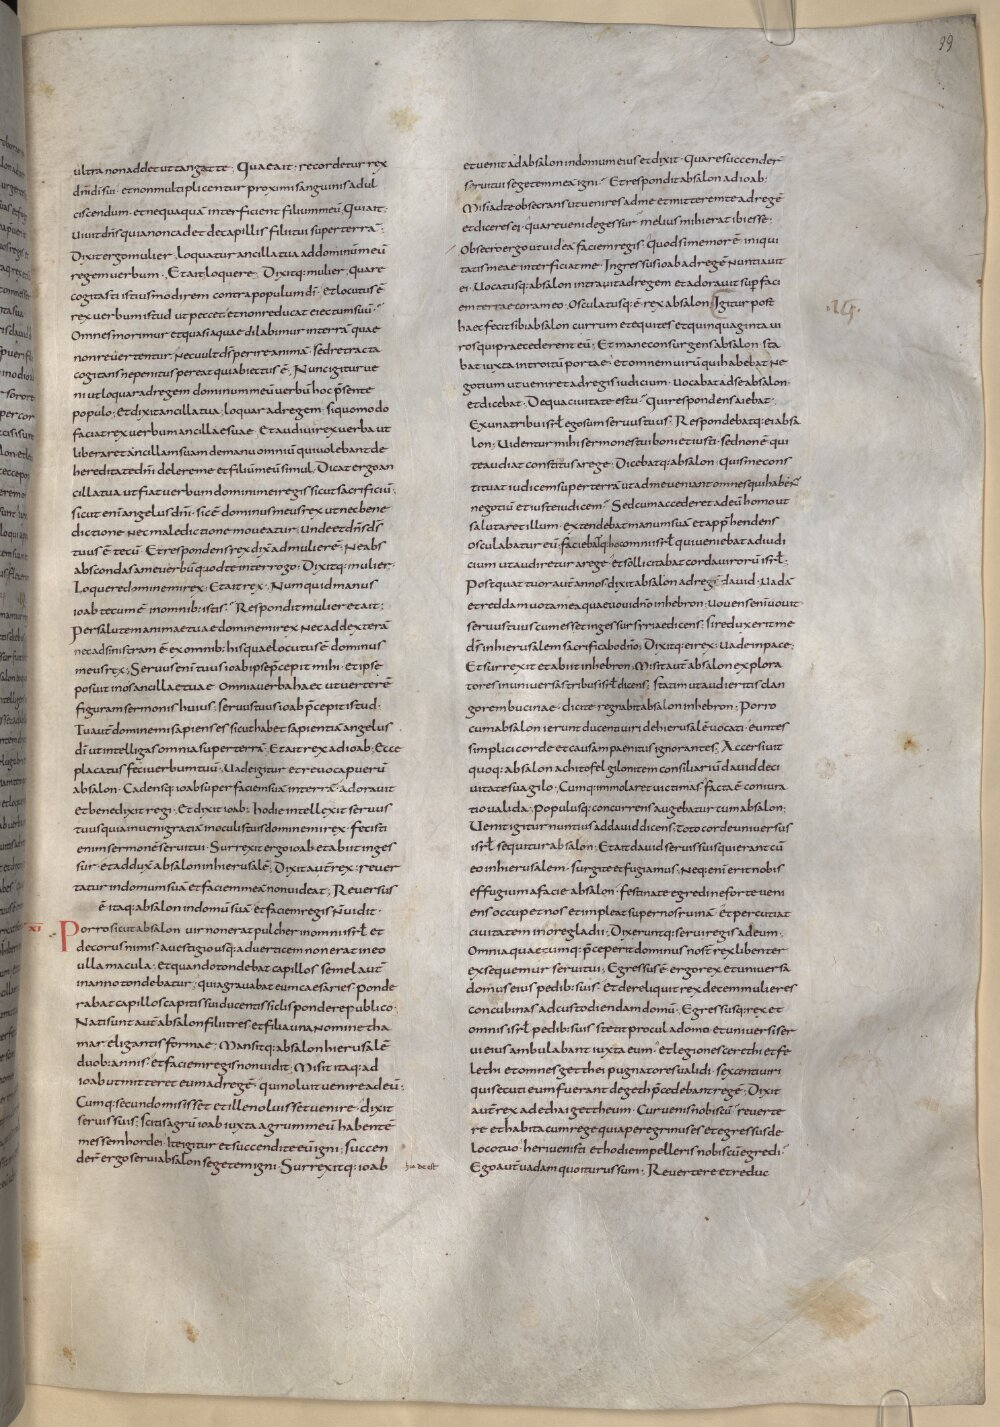 99
ultra non addet ut tangat te; Quae ait; recordetur rex
dñi di sui · et non multiplicentur proximi sanguinis ad ul
ciscendum · et nequaquā interficient filium meū; Qui ait;
Vivit dn̄s quia non cadet de capillis filii tui super terrā;
Dixit ergo mulier; loquatur ancilla tua ad dominū meū
regem verbum · Et ait; loquere; Dixitq; mulier; quare
cogitasti istiusmodi rem contra populum dī · et locutus ē
rex verbum istud ut peccet; et non reducat eiectum suū;
Omnes morimur et quasi aquae dilabimur in terrā · quae
non revertentur; Nec vult dś perire animā · sed retracta
cogitans ne penitus pereat qui abiectus ē; Nunc igitur ve
ni ut loquar ad regem dominum meū verbū hoc p̄sente
populo; Et dixit ancilla tua; loquar ad regem · si quo modo
faciat rex verbum ancillae suae · Et audivit rex verba ut
liberaret ancillam suam de manu omniū qui volebant de
hereditate dn̄i delere me et filiū meū simul; Dicat ergo an
cilla tua ut fiat verbum domini mei regis sicut sacrificiū;
sicut enī angelus dn̄i · sic ē dominus meus rex ut nec bene
dictione · nec maledictione moveatur; Unde et dn̄s dś
tuus ē tecū · Et respondens rex dix̄ ad mulierē; Ne abs
abscondas a me verbū quod te interrogo; Dixitq; mulier;
Loquere domine mi rex; Et ait rex · Numquid manus
ioab tecum ē in omnib; istis; Respondit mulier et ait;
Per salutem animae tuae domine mi rex · Nec ad dexterā
nec ad sinistram ē ex omnib; his quae locutus ē dominus
meus rex; Servus enī tuus ioab ipse p̄cepit mihi · et ipse
posuit in os ancillae tuae omnia verba haec ut verterē
figuram sermonis huius; servus tuus ioab p̄cepit istud ·
Tu autē domine mi sapiens es sicut habet sapientiā angelus
dī ut intelligas omnia super terrā; Et ait rex ad ioab; Ecce
placatus feci verbum tuū; Vade igitur et revoca puerū
absalon · Cadensq; ioab super faciem suā in terrā · adoravit
et benedixit regi · Et dixit ioab; hodie intellexit servus
tuus quia inveni gratiā in oculis tuis domine mi rex · fecisti
enim sermonē servi tui · Surrexit ergo ioab et abiit in ges
sur · et adduxit absalon in hierusalē; Dixit autē rex; rever
tatur in domum suā et faciem meā non videat; Reversus
ē itaq; absalon in domū suā et faciem regis n̄ vidit ·
XI Porro sicut absalon vir non erat pulcher in omni isrl̄ et
decorus nimis · a vestigio usq; ad verticem non erat in eo
ulla macula; et quando tondebat capillos semel autē
in anno tondebatur; quia gravabat eum caesaries · ponde
rabat capillos capitis sui ducentis siclis pondere publico ·
Nati sunt autē absalon filii tres et filia una nomine tha
mar eligantis formae; Mansitq; absalon hierusalē
duob; annis · et faciem regis non vidit; Misit itaq; ad
ioab ut mitteret eum ad regē · qui noluit venire ad eū;
Cumq; secundo misisset et ille noluisset venire · dixit
servis suis; scitis agrū ioab iuxta agrum meū habentē
messem hordei · Ite igitur et succendite eū igni; succen
der̄ ergo servi absalon segetem igni · Surrexitq; ioab
et venit ad absalon in domum eius et dixit · Quare succender̄
servi tui segetem mea igni; Et respondit absalon ad ioab;
Misi ad te obsecrans ut venires ad me et mitterem te ad regē
et diceres ei; quare veni de gessur; melius mihi erat ibi esse;
Obsecro ergo ut videā faciem regis · Quod si memor ē iniqui
tatis meae interficiat me · Ingressus ioab ad regē nuntiavit
ei · Vocatusq; absalon intravit ad regem et adoravit sup̄ faci
em terrae coram eo · Osculatusq; ē rex absalon; Igitur post
haec fecit sibi absalon currum et equites et quinquaginta vi
ros qui praecederent eū; Et mane consurgens absalon · sta
bat iuxta introitū portae · et omnem virū qui habebat ne
gotium ut veniret ad regis iudicium · vocabat ad se absalon ·
et dicebat · De qua civitate es tu; Qui respondens aiebat ·
Ex una tribu isrl̄ ego sum servus tuus; Respondebatq; ei absa
lon; Videntur mihi sermones tui boni et iusti · sed non ē qui
te audiat constitutus a rege · Dicebatq; absalon · Quis me cons
tituat iudicem super terrā ut ad me veniant omnes qui habent
negotiū et iuste iudicem; Sed cum accederet ad eū homo ut
salutaret illum · extendebat manum suā et app̄hendens
osculabatur eū · faciebatq; hoc omni isrl̄ qui veniebat ad iudi
cium ut audiretur a rege · et sollicitabat corda virorū isrl̄;
Post quattuor autē annos · dixit absalon ad regē david · vadā
et reddam vota mea quae vovi dn̄o in hebron · vovens enī vovit
servus tuus cum esset in gessur syriae dicens; si reduxerit me
dn̄s in hierusalem sacrificabo dn̄o; Dixitq; ei rex; vade in pace;
Et surrexit et abiit in hebron; Misit autē absalon explora
tores in universas tribus isrl̄ dicens; statim ut audieritis clan
gorem bucinae · dicite regnabit absalon in hebron; Porro
cum absalon ierunt ducenti viri de hierusalē vocati · euntes
simplici corde et causam paenitus ignorantes; Accersivit
quoq; absalon achitofel gilonitem consiliariū david de ci
vitate sua gilo; Cumq; immolaret victimas facta ē coniura
tio valida · Populusq; concurrens augebatur cum absalon;
Venit igitur nuntius ad david dicens; toto corde universus
isrl̄ sequitur absalon; Et ait david servis suis qui erant cū
eo in hierusalem · surgite et fugiamus; Neq; enī erit nobis
effugium a facie absalon · festinate egredi ne forte veni
ens occupet nos et impleat super nos ruinā · et percutiat
civitatem in ore gladii; Dixeruntq; servi regis ad eum ·
Omnia quaecumq; p̄ceperit dominus nost̄ rex libenter
exsequemur servi tui; Egressus ē ergo rex et universa
domus eius pedib; suis · Et dereliquit rex decem mulieres
concubinas ad custodiendam domū; Egressusq; rex et
omnis isrl̄ pedib; suis · stetit procul a domo · et universi ser
vi eius ambulabant iuxta eum · et legiones cerethi et fe
lethi et omnes getthei pugnatores validi · sexcenti viri
qui secuti eum fuerant de geth p̄cedebant regē; Dixit
autē rex ad ethai gettheum · Cur venis nobiscū · reverte
re et habita cum rege quia peregrinus es et egressus de
loco tuo · heri venisti · et hodie impelleris nobiscū egredi;
Ego autē vadam quo iturus sum; Revertere et reduc